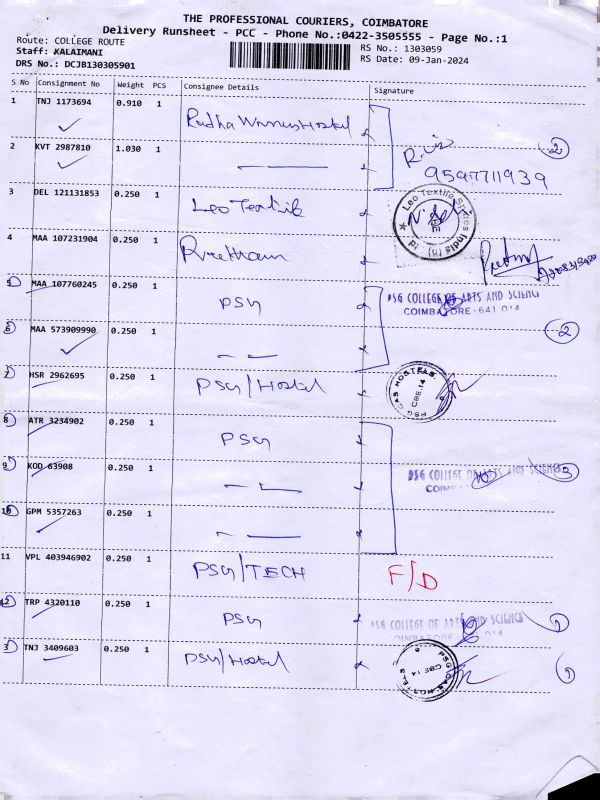 THE PROFESSIONAL COURIERS, COIMBATORE
Delivery Runsheet - PCC - Phone No.:0422-3505555 - Page No.:1
Route: COLLEGE ROUTE
Staff: KALAIMANI
DRS No.: DCJB130305901
RS No.: 1303059
RS Date: 09-Jan-2024
S No Consignment No Weight PCS Consignee Details Signature
1 TNJ 1173694 0.910 1 Radha Hostel
2 KVT 2987810 1.030 1
2
9597711939
3 DEL 121131853 0.250 1 Leo Textile
Leo Textile Spares India (P) Ltd
4 MAA 107231904 0.250 1 Preetham
5 MAA 107760245 0.250 1 PSG
PSG COLLEGE OF ARTS AND SCIENCE
COIMBATORE-641 014
6 MAA 573909990 0.250 1
2
7 HSR 2962695 0.250 1 PSG/Hostel
PSG CAS HOSTELS CBE.14
8 ATR 3234902 0.250 1 PSG
9 KOD 63908 0.250 1
PSG COLLEGE OF ARTS AND SCIENCE
3
10 GPM 5357263 0.250 1
11 VPL 403946902 0.250 1 PSG/TECH F/D
12 TRP 4320110 0.250 1 PSG
PSG COLLEGE OF ARTS AND SCIENCE
COIMBATORE 014
1
3 TNJ 3409603 0.250 1 PSG/Hostel
PSG CAS HOSTELS CBE 14
1